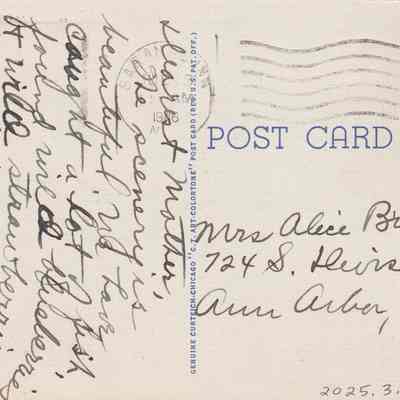 dearest Mother,
The scenery is
beautiful. We have
caught a lot of fish,
found wild
& wild strawberries
GENUINE CURTEICH-CHICAGO "C.T. ART-COLORTONE" POST CARD (REG. U.S. PAT. OFF.)
POST CARD
Mrs Alice
724 S.
Ann Arbor,
2025.3.